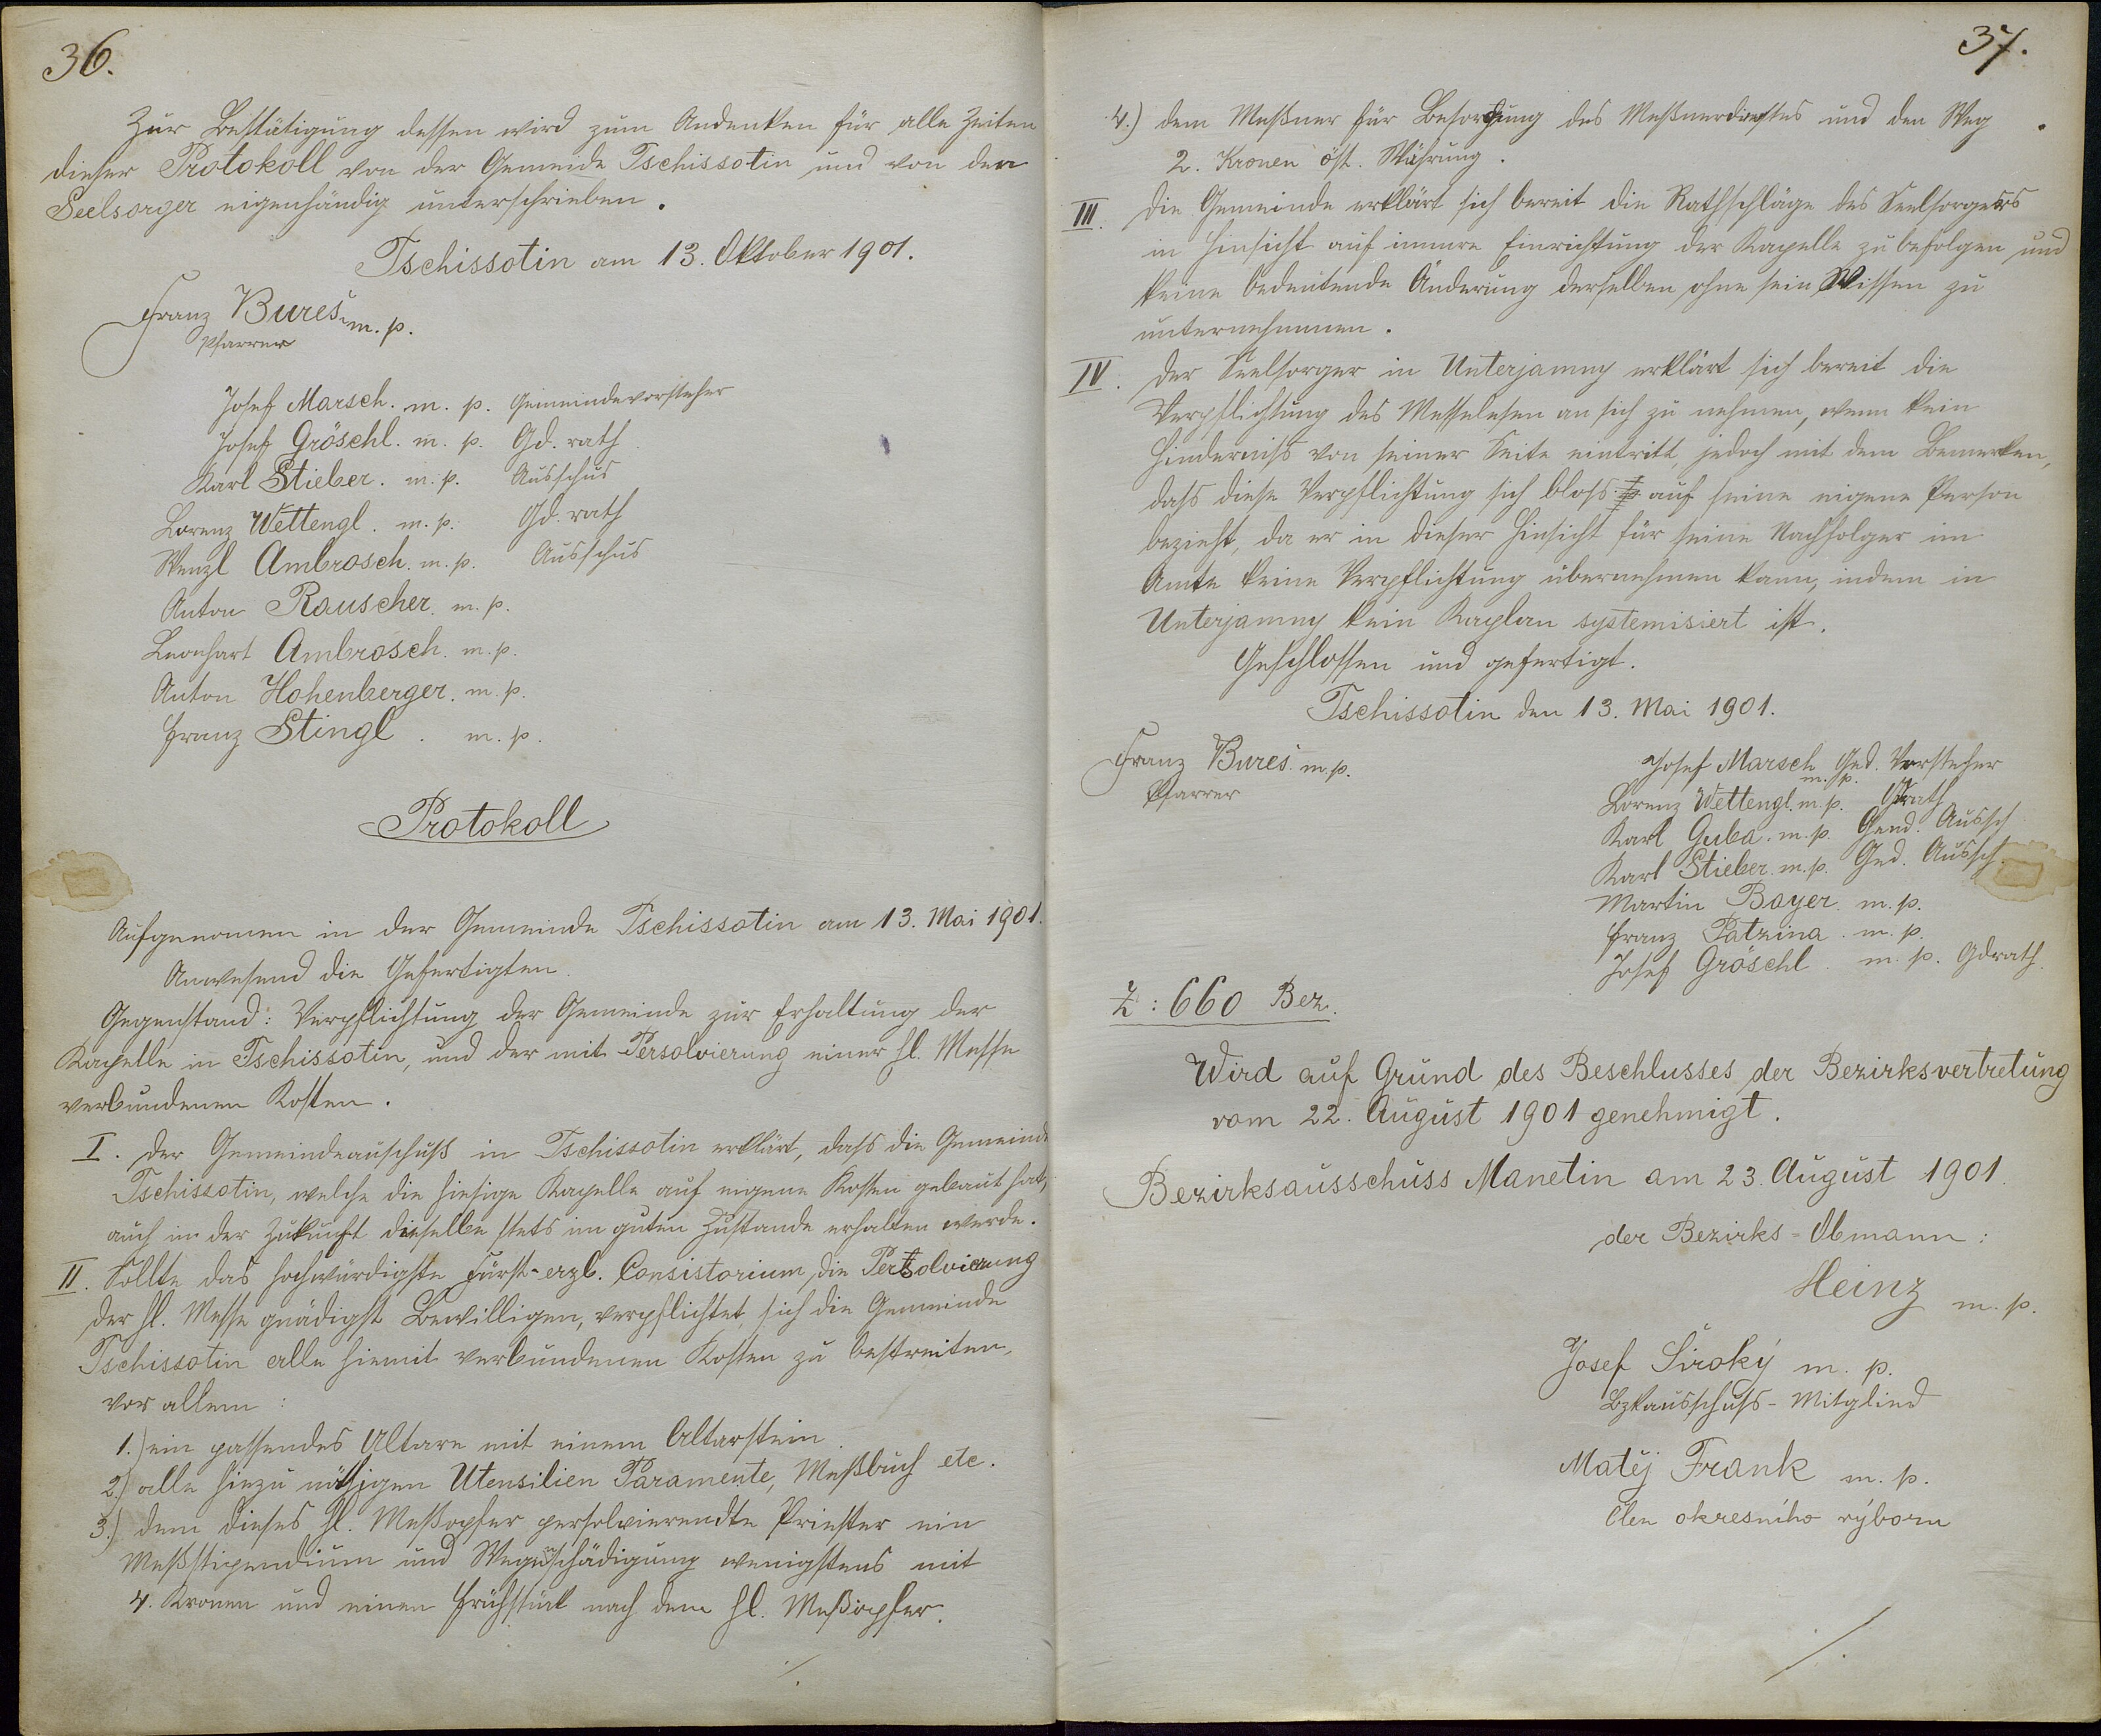 36.
Zur Bestätigung dessen wird zum Andenken für alle Zeiten
dieser Protokoll von der Gemeinde Tschissotin und von den
Seelsorger eigenhändig unterschrieben.
Tschissotin am 13. Oktober 1901.
Franz Bureš m. p.
Pfarrer
Josef Marsch. m. p. Gemeindevorsteher
Josef Gröschl. m. p. Gd. rath
Karl Stieber. m. p. Ausschus
Lorenz Wettengl. m. p. Gd. rath
Wenzl Ambrosch. m. p. Ausschus
Anton Rauscher. m. p.
Leonhart Ambrosch. m. p.
Anton Hohenberger. m. p.
Franz Stingl. m. p.
Protokoll
Aufgenomen in der Gemeinde Tschissotin am 13. Mai 1901.
Anwesend die Gefertigten
Gegenstand: Verpflichtung der Gemeinde zur Erhaltung der
Kapelle in Tschissotin, und der mit Persolvierung einer hl. Messe
verbundenen Kosten.
I. Der Gemeindeauschuß in Tschissotin erklärt, dass die Gemeinde
Tschissotin, welche die hiesige Kapelle auf eigene Kosten gebaut hat,
auch in der Zukunft dieselbe stets im guten Zustande erhalten werde.
II. Sollte das hochwürdigste Fürst-erzb. Consistorium die Persolvierung
der hl. Messe gnädigst Bewilligen, verpflichtet sich die Gemeinde
Tschissotin alle hiemit verbundenen Kosten zu bestreiten,
vor allem:
1.) ein passendes Altare mit einem Altarstein.
2.) alle hiezu nöthigen Utensilien Paramente, Meßbuch etc.
3.) dem dieses hl. Meßopfer persolvierendte Priester ein
Meßstipendium und Wegeschädigung wenigstens mit
4. Kronen und einen Frühstück nach dem hl. Meßopfer.
/.
37.
4.) dem Meßner für Besorgung des Meßnerdienstes und den Weg
2. Kronen öst. Währung.
III. Die Gemeinde erklärt sich bereit die Rathschläge des Seelsorgers
in Hinsicht auf innere Einrichtung der Kapelle zu befolgen und
keine bedeutende Änderung derselben ohne sein Wissen zu
unternehmen.
IV. Der Seelsorger in Unterjamny erklärt sich bereit die
Verpflichtung des Messelesen an sich zu nehmen, wenn kein
Hinderniss von seiner Seite eintritt, jedoch mit dem Bemerken,
dass diese Verpflichtung sich bloss auf seine eigene Person
bezieht, da er in dieser Hinsicht für seine Nachfolger im
Amte keine Verpflichtung übernehmen kann, indem in
Unterjamny kein Kaplan systemisiert ist.
Geschlossen und gefertigt.
Tschissotin den 13. Mai 1901.
Franz Bureš m. p.
Pfarrer
Josef Marsch m. p. Gd. Vorsteher
Lorenz Wettengl. m. p. Gdrath
Karl Guba. m. p. Gmd. Aussch
Karl Stieber. m. p. Gmd. Aussch.
Martin Bayer. m. p.
Franz Patzina. m. p.
Josef Gröschl. m. p. Gdrath.
Z: 660 Bez.
Wird auf Grund des Beschlusses der Bezirksvertretung
vom 22. August 1901 genehmigt.
Bezirksausschuss Manetin am 23. August 1901.
der Bezirks-Obmann:
Heinz m. p.
Josef Široký m. p.
Bzkausschuss-Mitglied
Matěj Frank m. p.
Člen okresního výboru
/.